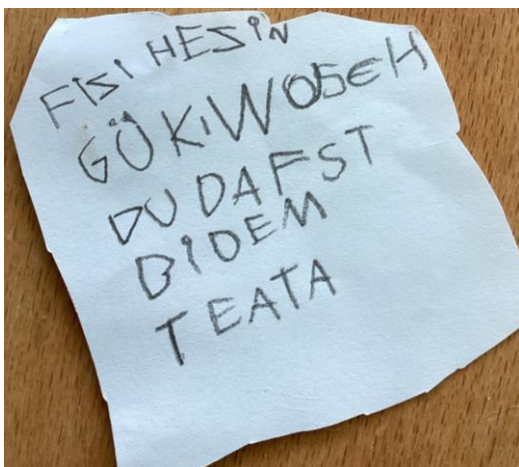 FISI HESIN
GÖKIWOSEH
DU DAFST
BIDEM
TEATA